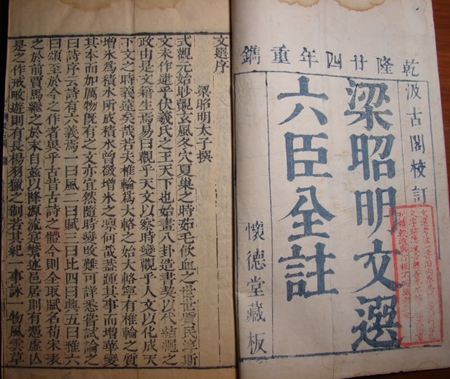 乾隆廿四年重鐫
汲古閣校訂
梁昭明文選
六臣全註
懷德堂藏板
文選序
梁昭明太子撰
式觀元始眇覿玄風冬穴夏巢之時茹毛飲血之世世質民淳斯
文未作逮乎伏羲氏之王天下也始畫八卦造書契以代結繩之
政由是文籍生焉易曰觀乎天文以察時變觀乎人文以化成天
下文之時義遠矣哉若夫椎輪爲大輅之始大輅寧有椎輪之質
增冰爲積水所成積水曾微增冰之凛何哉蓋踵其事而增華變
其本而加厲物既有之文亦宜然隨時變改難可詳悉嘗試論之
曰詩序云詩有六義焉一曰風二曰賦三曰比四曰興五曰雅六
曰頌至於今之作者異乎古昔古詩之體今則全取賦名荀宋表
之於前賈馬繼之於末自兹以降源流寔繁述邑居則有憑虛亡
是之作戒畋遊則有長楊羽獵之制若其紀一事詠一物風雲草